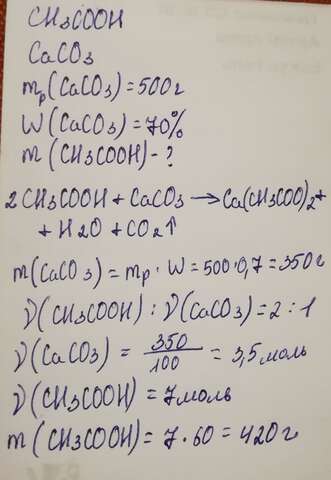 CH3COOH
CaCO3
mр(CaCO3)=500г
W(CaCO3)=70%
m(CH3COOH)-?
2CH3COOH+CaCO3→Ca(CH3COO)2+
+H2O+CO2↑
m(CaCO3)=mр·W=500·0,7=350г
ν(CH3COOH):ν(CaCO3)=2:1
ν(CaCO3)=350/100=3,5моль
ν(CH3COOH)=7моль
m(CH3COOH)=7·60=420г